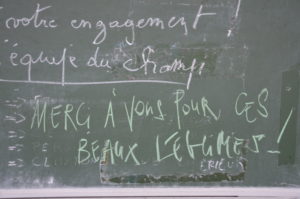 votre engagement !
équipe du champ
MERCI À VOUS POUR CES
BEAUX LÉGUMES !